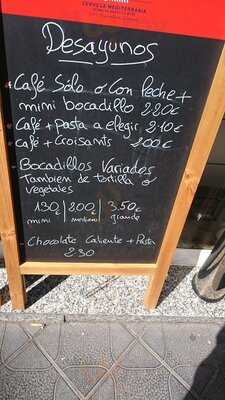 CERVEZA MEDITERRÁNEA
Desayunos
Café Sólo o con leche +
mini bocadillo 220€
Café + pasta a elegir 210€
café + Croisants 200€
- Bocadillos Variados
Tambien de tortilla o
vegetales
130€ | 200€ | 3,50€
mini | mediano | grande
- Chocolate Caliente + Pasta
230